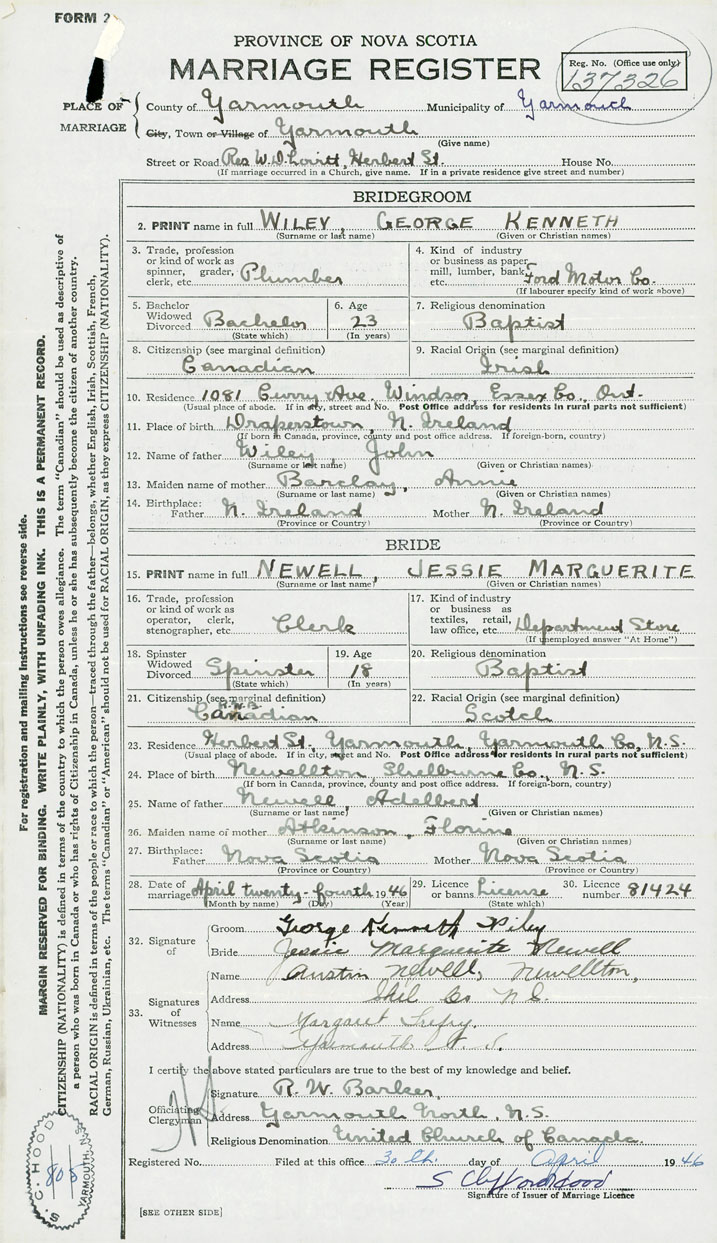 FORM 2
PROVINCE OF NOVA SCOTIA
MARRIAGE REGISTER
Reg. No. (Office use only)
137326
PLACE OF MARRIAGE
County of Yarmouth Municipality of Yarmouth
City, Town or Village of Yarmouth
(Give name)
Street or Road Res W.D. Lovitt, Herbert St. House No.
(If marriage occurred in a Church, give name. If in a private residence give street and number)
BRIDEGROOM
2. PRINT name in full WILEY, GEORGE KENNETH
(Surname or last name) (Given or Christian names)
3. Trade, profession or kind of work as spinner, grader, clerk, etc. Plumber
4. Kind of industry or business as paper mill, lumber, bank, etc. Ford Motor Co.
(If labourer specify kind of work above)
5. Bachelor Widowed Divorced Bachelor
(State which)
6. Age 23
(In years)
7. Religious denomination
Baptist
8. Citizenship (see marginal definition)
Canadian
9. Racial Origin (see marginal definition)
Irish
10. Residence 1081 Curry Ave. Windsor, Essex Co., Ont.
(Usual place of abode. If in city, street and No. Post Office address for residents in rural parts not sufficient)
11. Place of birth Draperstown, N. Ireland
(If born in Canada, province, county and post office address. If foreign-born, country)
12. Name of father Wiley, John
(Surname or last name) (Given or Christian names)
13. Maiden name of mother Barclay, Annie
(Surname or last name) (Given or Christian names)
14. Birthplace: Father N. Ireland Mother N. Ireland
(Province or Country) (Province or Country)
BRIDE
15. PRINT name in full NEWELL, JESSIE MARGUERITE
(Surname or last name) (Given or Christian names)
16. Trade, profession or kind of work as operator, clerk, stenographer, etc. Clerk
17. Kind of industry or business as textiles, retail, law office, etc. Department Store
(If unemployed answer "At Home")
18. Spinster Widowed Divorced Spinster
(State which)
19. Age 18
(In years)
20. Religious denomination
Baptist
21. Citizenship (see marginal definition)
Canadian
22. Racial Origin (see marginal definition)
Scotch
23. Residence Herbert St., Yarmouth, Yarmouth Co, N.S.
(Usual place of abode. If in city, street and No. Post Office address for residents in rural parts not sufficient)
24. Place of birth Newellton, Shelburne Co., N.S.
(If born in Canada, province, county and post office address. If foreign-born, country)
25. Name of father Newell, Adelbert
(Surname or last name) (Given or Christian names)
26. Maiden name of mother Atkinson, Florine
(Surname or last name) (Given or Christian names)
27. Birthplace: Father Nova Scotia Mother Nova Scotia
(Province or Country) (Province or Country)
28. Date of marriage April twenty-fourth 1946
(Month by name) (Day) (Year)
29. Licence or banns License
(State which)
30. Licence number 81424
32. Signature of
Groom George Kenneth Wiley
Bride Jessie Marguerite Newell
33. Signatures of Witnesses
Name Austin Newell, Newellton,
Address Shel Co N.S.
Name Margaret Trefry.
Address Yarmouth N. S.
I certify the above stated particulars are true to the best of my knowledge and belief.
Officiating Clergyman
Signature R. W. Barker,
Address Yarmouth North, N.S.
Religious Denomination United Church of Canada.
Registered No. Filed at this office 30 th. day of April 1946
S Clifford Hood
Signature of Issuer of Marriage Licence
[SEE OTHER SIDE]
For registration and mailing instructions see reverse side.
MARGIN RESERVED FOR BINDING. WRITE PLAINLY, WITH UNFADING INK. THIS IS A PERMANENT RECORD.
CITIZENSHIP (NATIONALITY) is defined in terms of the country to which the person owes allegiance. The term "Canadian" should be used as descriptive of
a person who was born in Canada or who has rights of Citizenship in Canada, unless he or she has subsequently become the citizen of another country.
RACIAL ORIGIN is defined in terms of the people or race to which the person—traced through the father—belongs, whether English, Irish, Scottish, French,
German, Russian, Ukrainian, etc. The terms "Canadian" or "American" should not be used for RACIAL ORIGIN, as they express CITIZENSHIP (NATIONALITY).
S. C. HOOD
805
YARMOUTH, N.S.